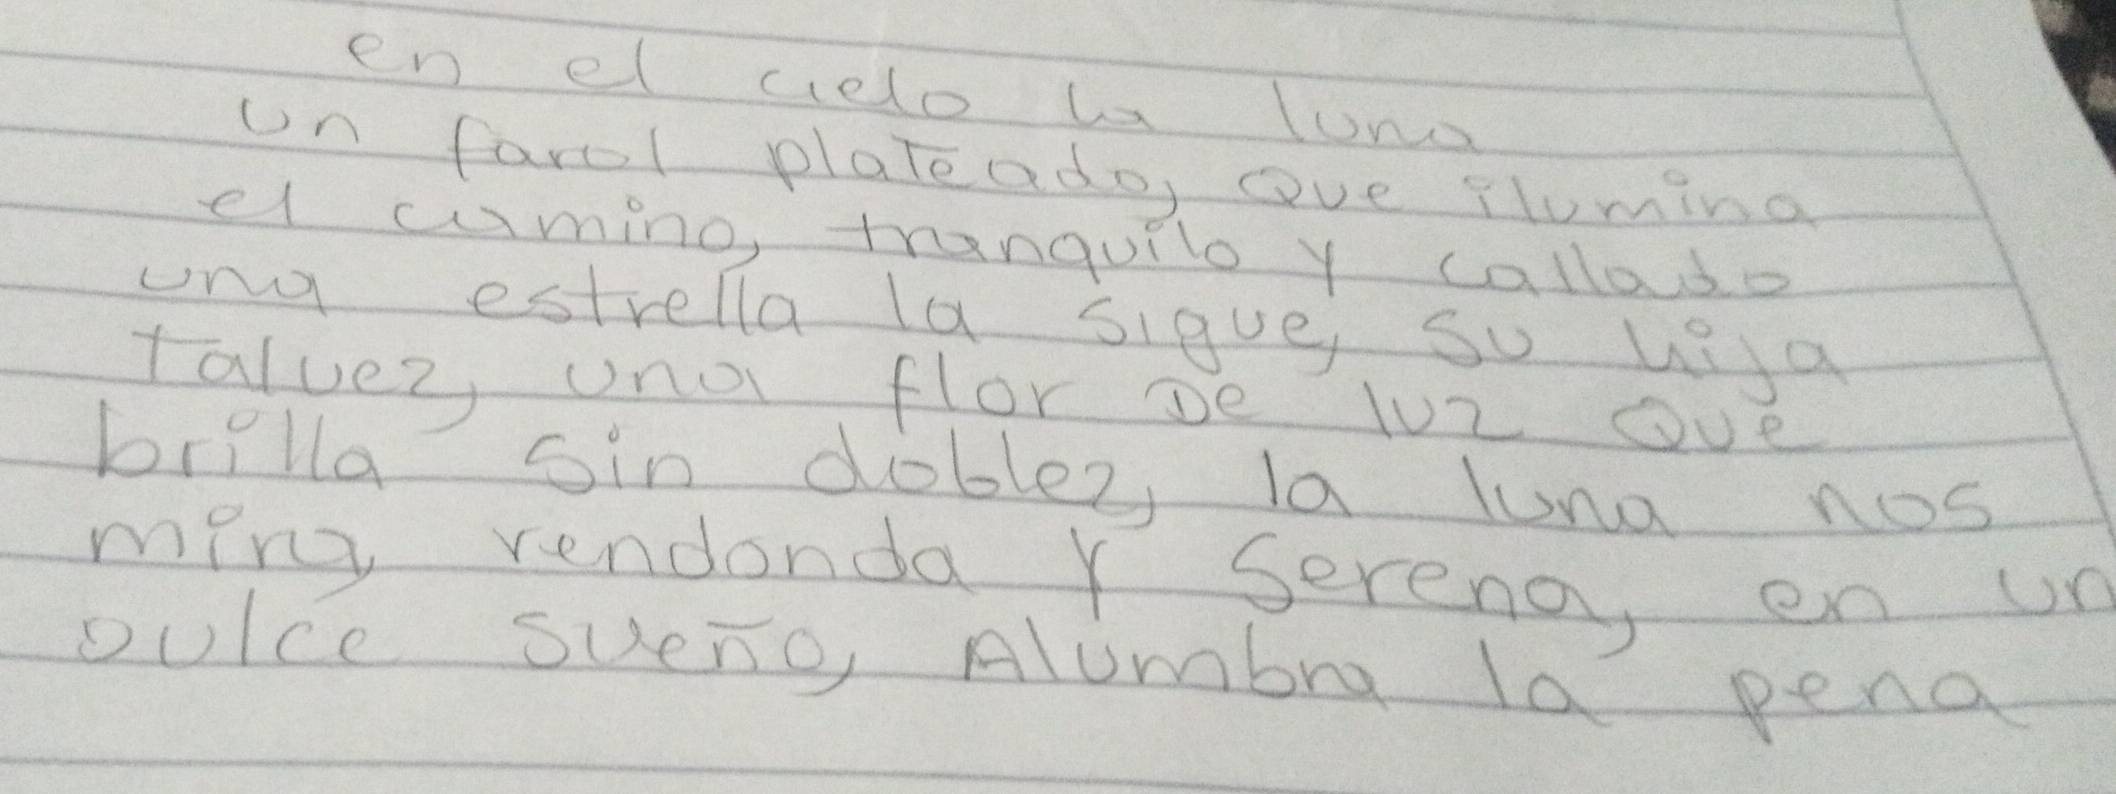 en el cielo la luna
un farol plateado, que ilumina
el camino, tranquilo y callado
una estrella la sigue, su hija
talvez, una flor De luz que
brilla sin doblez, la luna nos
mira, rendonda y serena, en un
dulce sueño, Alumbra la pena